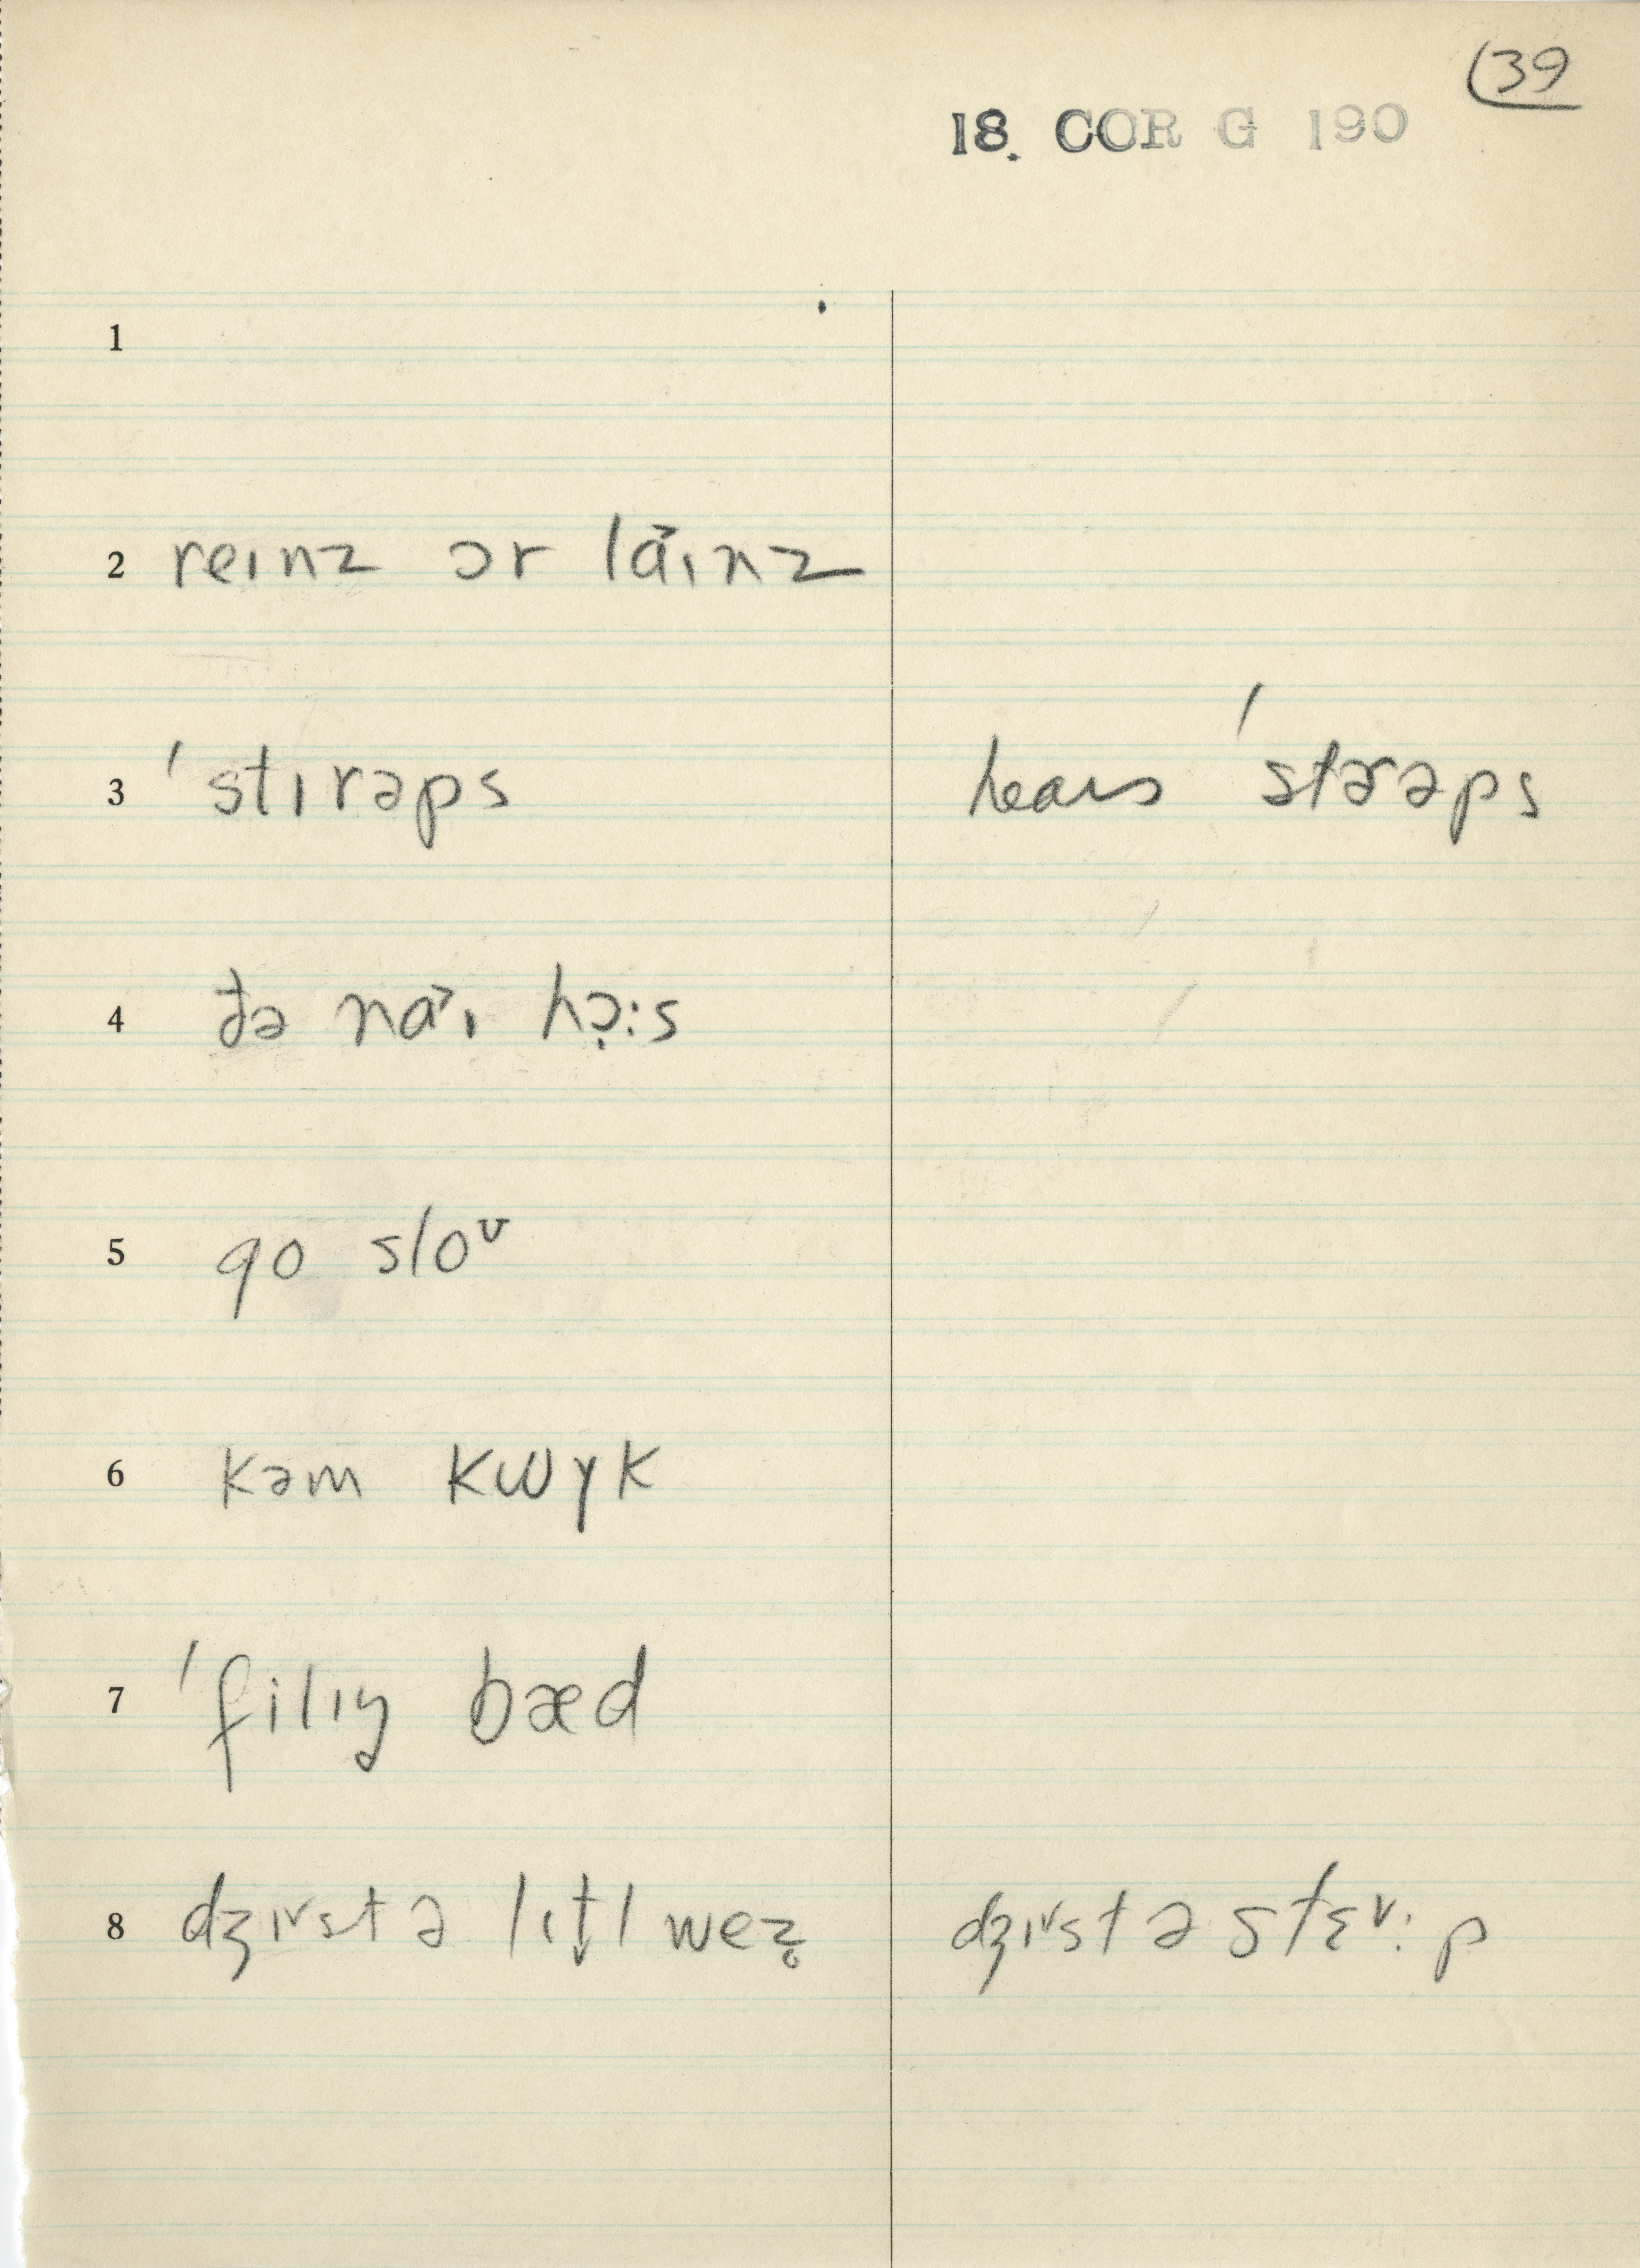 39
18. COR G 190
1
2 reɪnz ɔr lɑ˃ɪnz
3 ˈstɪrəps hears ˈstɚəps
4 ðə nɑ˃ɪ hɔ̣:s
5 go sloᴜ
6 kəm kwɣk
7 ˈfilɪŋ bæd
8 dʒɪ˅st ə lɪt̬l weʒ̥ dʒɪ˅st ə stɛ˅: p